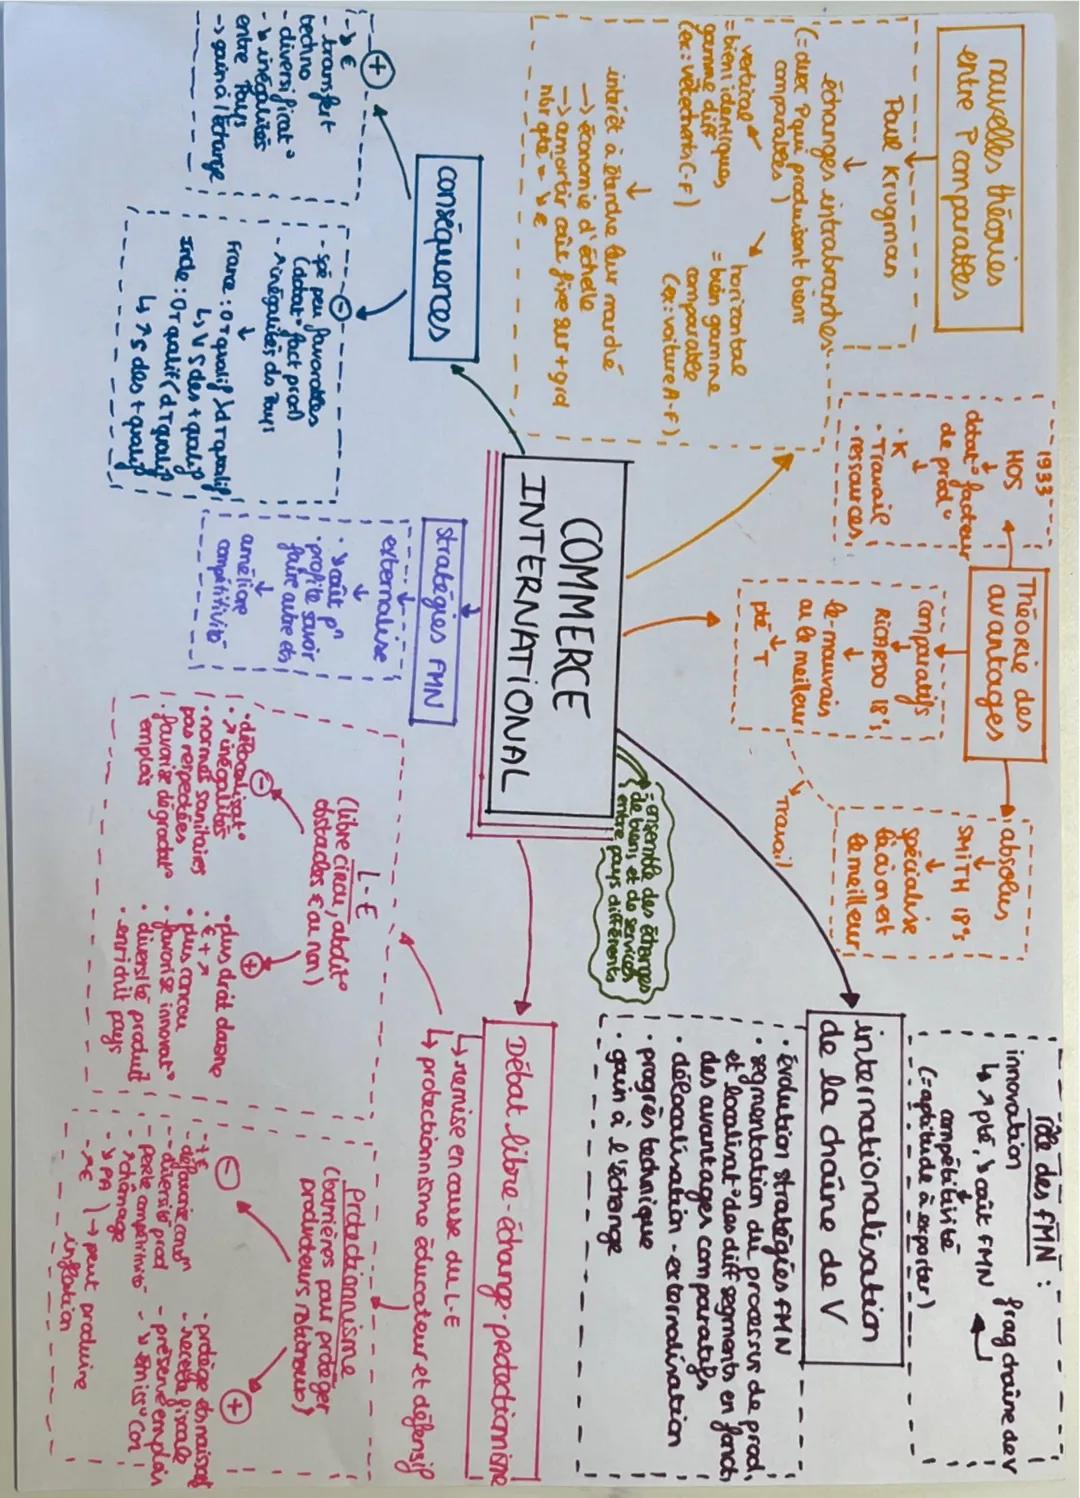 COMMERCE
INTERNATIONAL
= ensemble des échanges
de biens et de services
entre pays différents
nouvelles théories
entre P comparables
Paul Krugman
échanges intrabranches
(= avec P qui produisent biens
comparables)
vertical
= bien identiques
gamme diff
(ex: vêtements C-F)
horizontal
= bien gamme
comparable
(ex: voiture A-F)
intérêt à étendre leur marché
→ économie d'échelle
→ amortir coût fixe sur + grd
nbr qté = ↘ €
Théorie des
avantages
1933
HOS
dotat° facteur
de prod°
• K
• Travail
• ressources
comparatifs
RICARDO 18's
le - mauvais
ou le meilleur
pté T
Travail
absolus
SMITH 18's
spécialise
là où on est
le meilleur
internationalisation
de la chaîne de V
rôle des FMN :
innovation
↳ ↗ pté, ↘ coût FMN
compétitivité
(= aptitude à exporter)
frag chaîne de V
• évolution stratégies FMN
• segmentation du processus de prod,
et localisat° des diff segments en fonct,
des avantages comparatifs
• délocalisation - externalisation
• progrès technique
• gain à l'échange
conséquences
+
- ↘ €
- transfert
techno
- diversificat°
- ↘ inégalités
entre Pays
→ gain à l'échange
-
- spé peu favorables
(dotat° fact prod)
- ↗ inégalités ds Pays
France: OT qualif > dT qualif
↳ ↘ S des + qualif
Inde: OT qualif < dT qualif
↳ ↗ S des + qualif
stratégies FMN
externalise
• ↘ coût p°
• profite savoir
faire autre ets
améliore
compétitivité
Débat libre-échange-protectionisme
↳ remise en cause du L-E
↳ protectionnisme éducateur et défensif
L-E
(libre circu, abolit°
obstacles € ou non)
-
• délocalisat°
• ↗ inégalités
• normes sanitaires
pas respectées
• favorise dégradat°
emplois
+
• plus droit douane
• € + ↗
• plus concu
• favorise innovat°
• diversité produit
• enrichit pays
protectionnisme
(barrières pour protéger
producteurs nationaux)
-
- + €
- défavorise con°
- diversité prod
- perte compétitivité
- ↗ chômage
- ↘ PA
- ↗ €
→ peut produire
inflation
+
- protège ets naissat
- recette fiscale
- préserve emplois
- ↘ émiss° Con